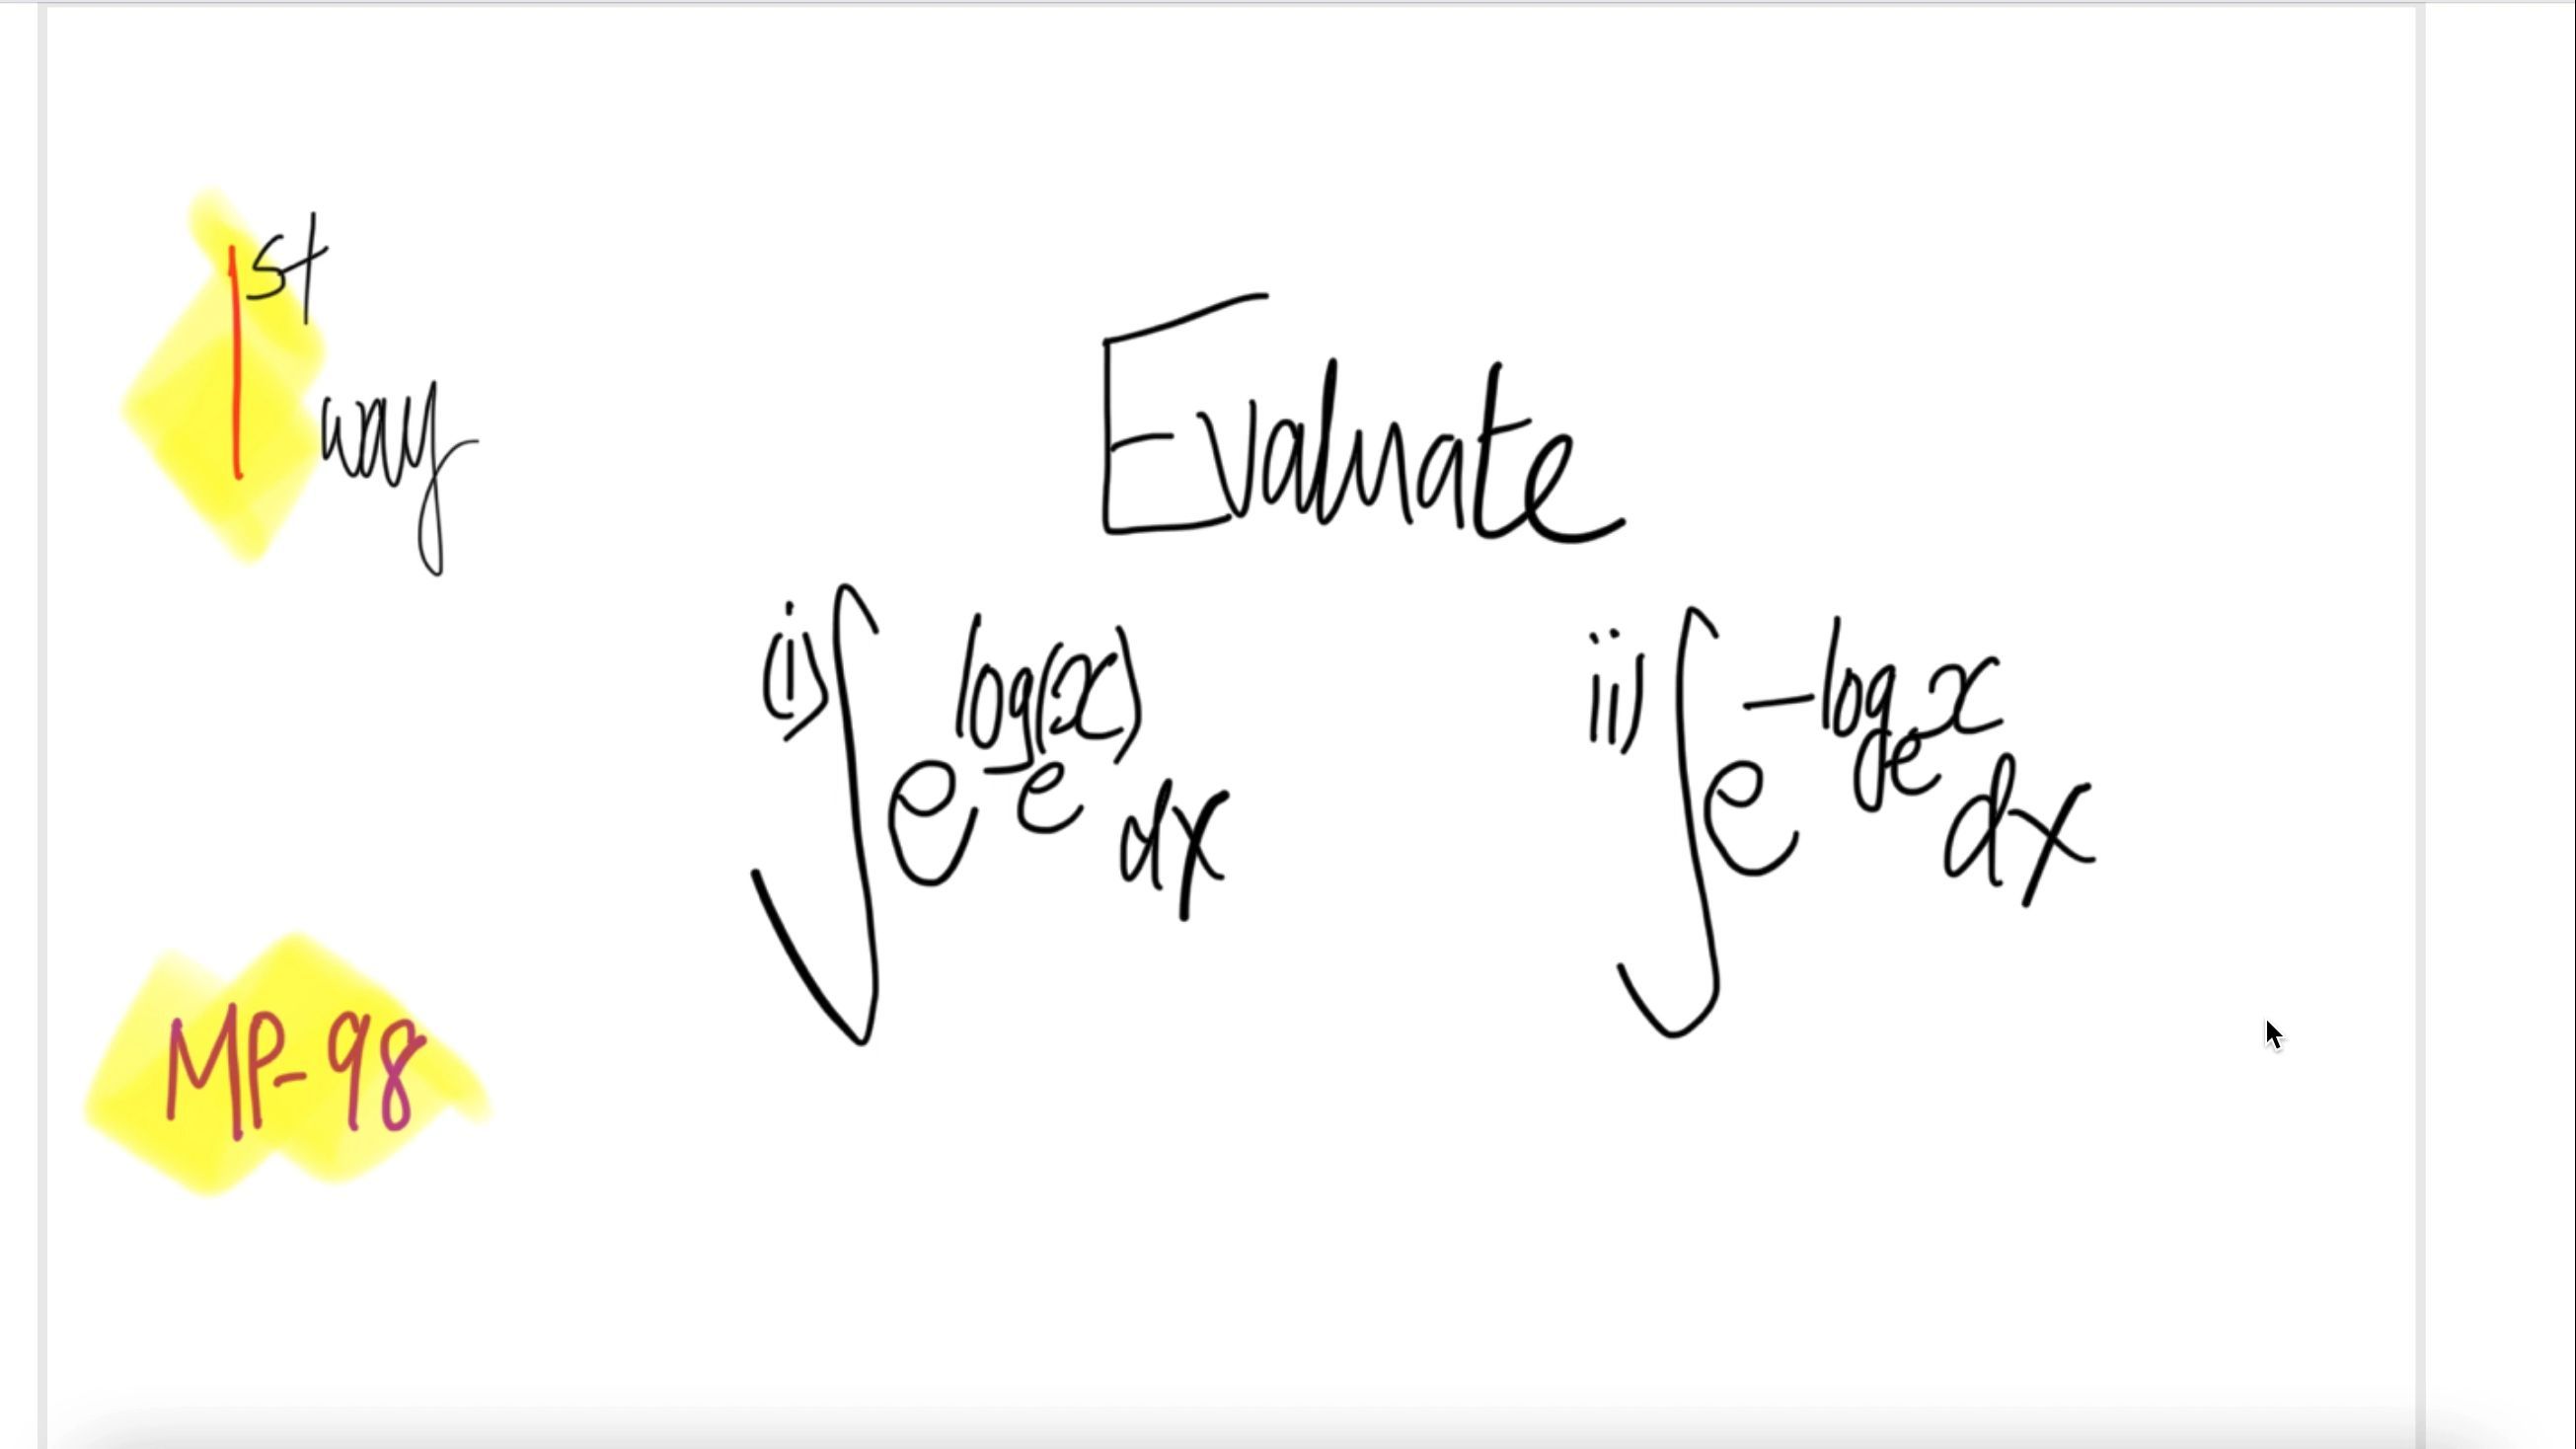 1st way
Evaluate
(i) ∫e^log_e(x) dx
ii) ∫e^-log_e x dx
MP-98